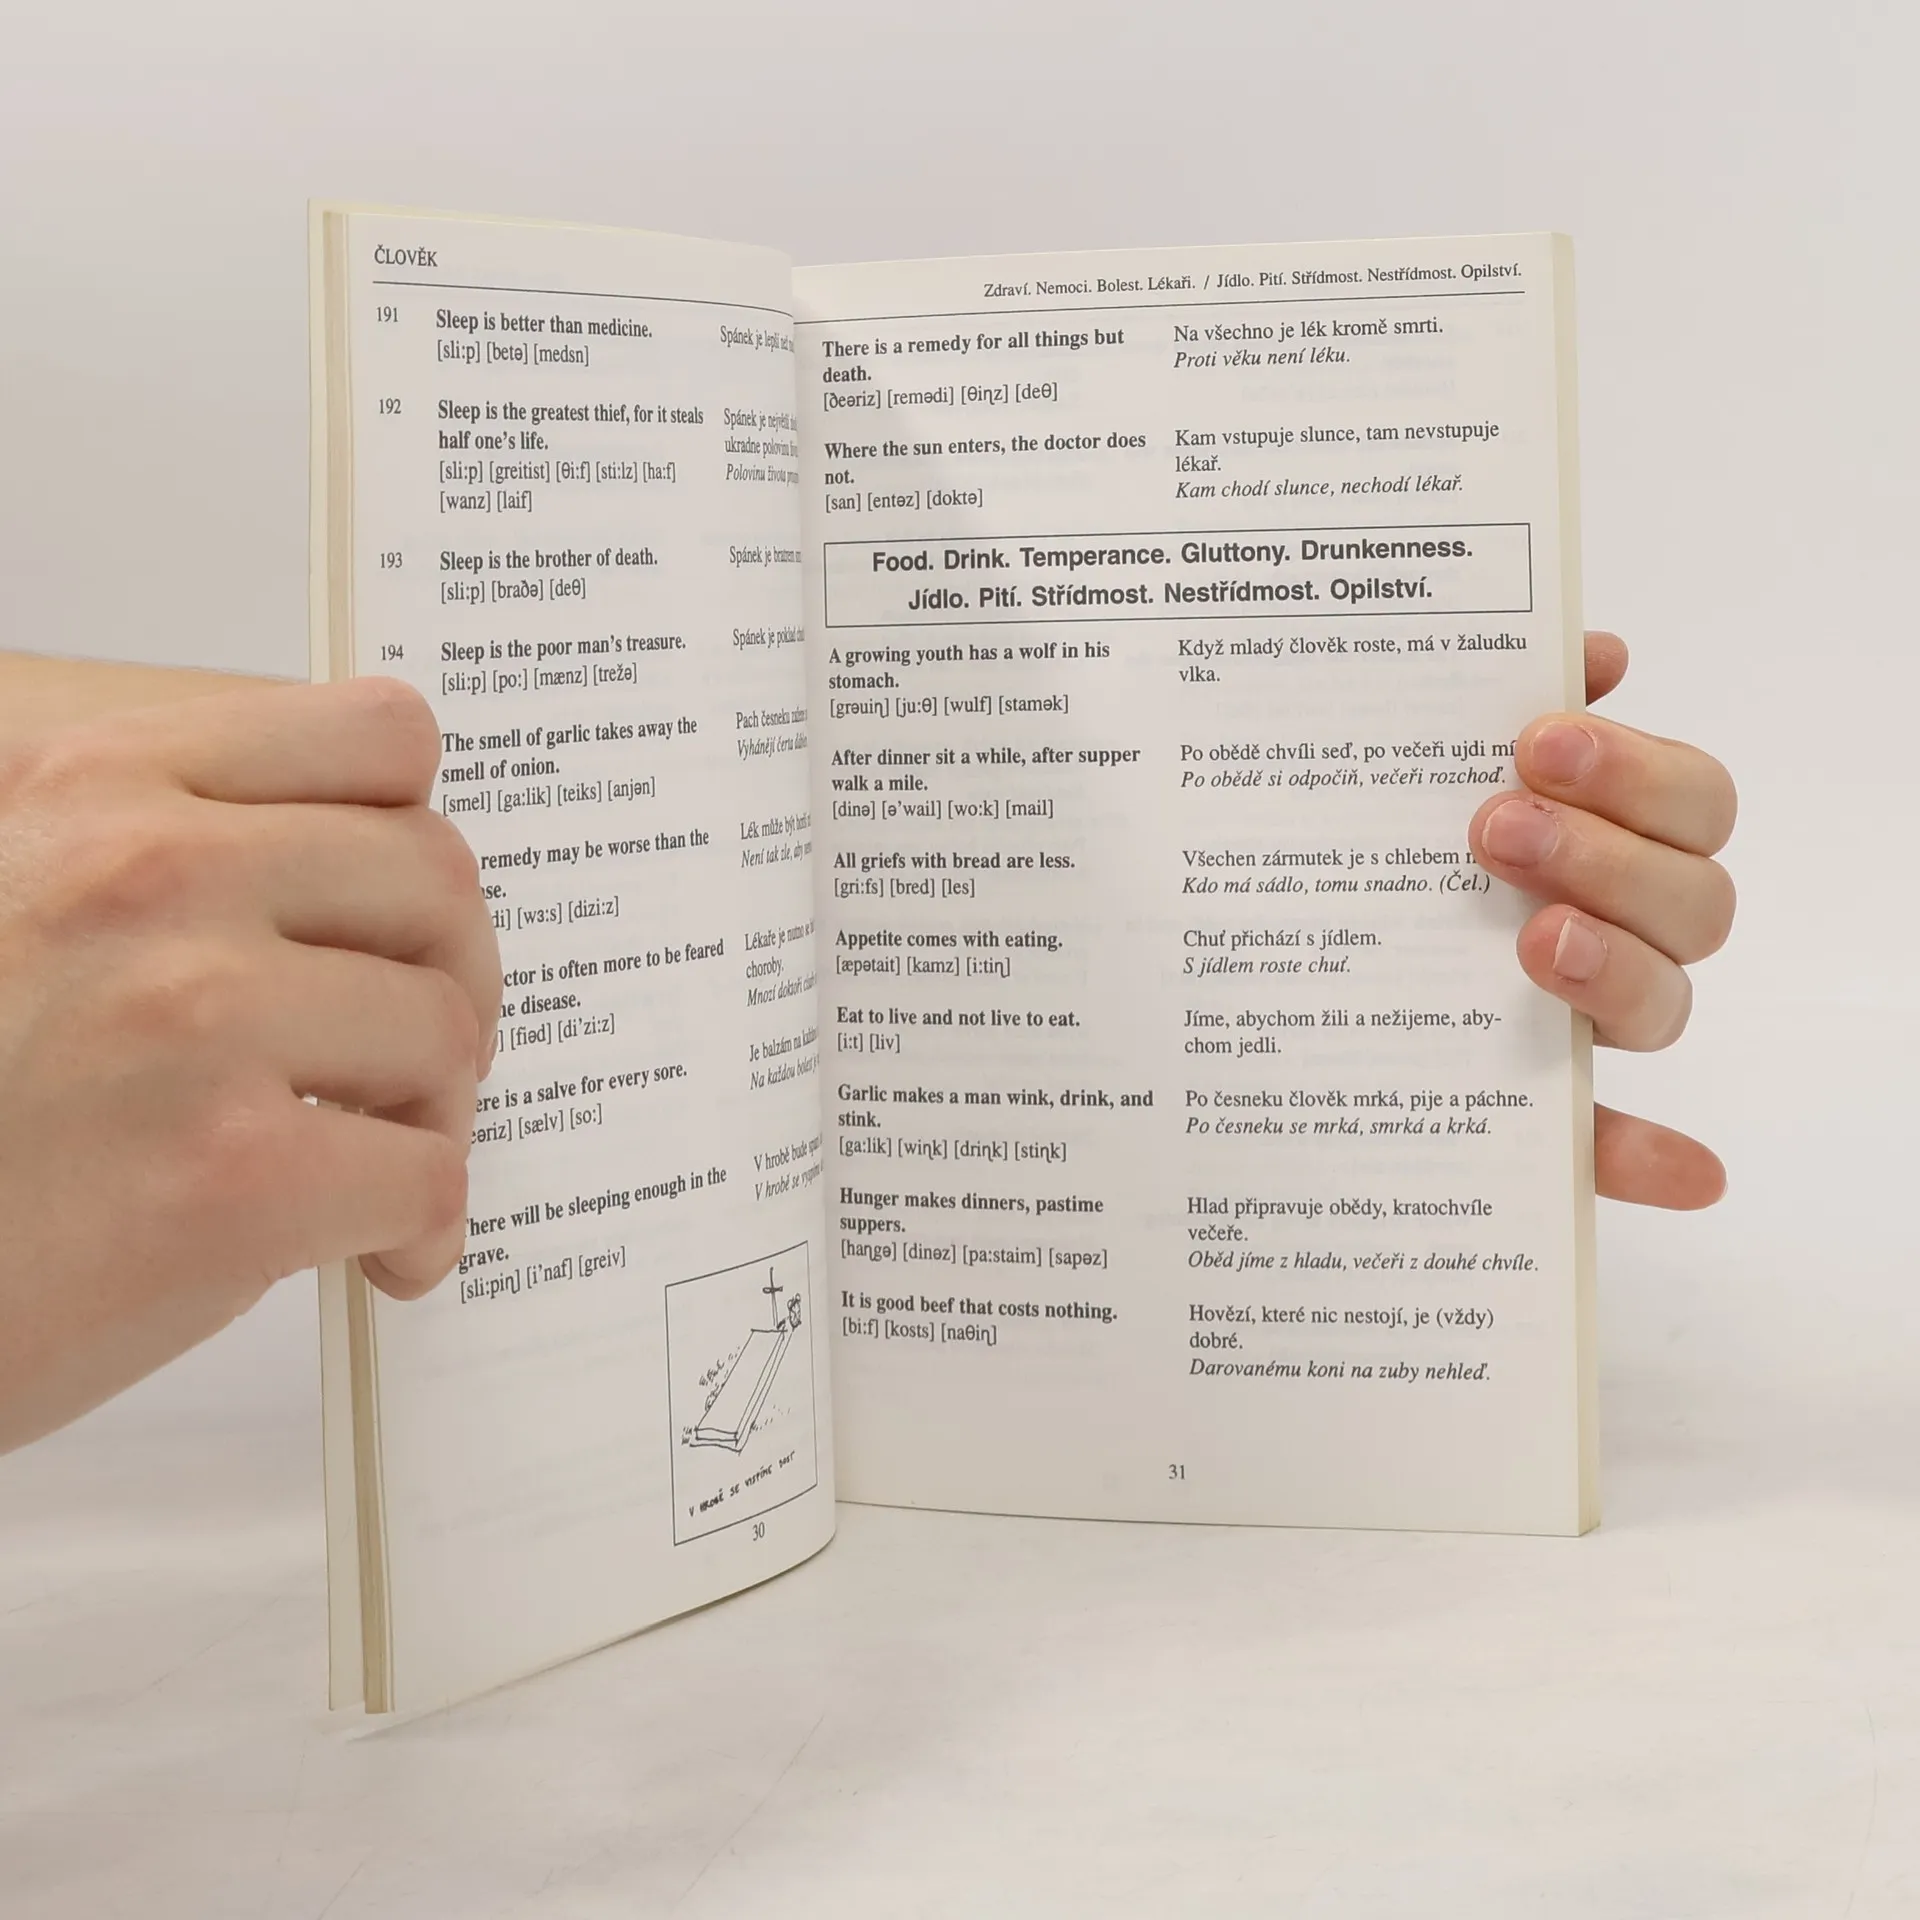 ČLOVĚK
191
Sleep is better than medicine.
[sli:p] [betə] [medsn]
Spánek je lepší než
192
Sleep is the greatest thief, for it steals
half one's life.
[sli:p] [greitist] [θi:f] [sti:lz] [ha:f]
[wanz] [laif]
Spánek je největší
ukradne polovinu
Polovinu života
193
Sleep is the brother of death.
[sli:p] [braðə] [deθ]
Spánek je bratrem
194
Sleep is the poor man's treasure.
[sli:p] [po:] [mænz] [trežə]
Spánek je poklad
The smell of garlic takes away the
smell of onion.
[smel] [ga:lik] [teiks] [anjən]
Pach česneku
Vyhánějí čerta
remedy may be worse than the
[wɜ:s] [dizi:z]
Lék může být horší
Není tak zle, aby
is often more to be feared
disease.
[fiəd] [di'zi:z]
Lékaře je nutno se
choroby.
Mnozí doktoři
is a salve for every sore.
[sælv] [so:]
Je balzám na
Na každou bolest
There will be sleeping enough in the
grave.
[sli:piɳ] [i'naf] [greiv]
V hrobě bude
V hrobě se
V HROBĚ SE VYSPÍME DOST
30
Zdraví. Nemoci. Bolest. Lékaři. / Jídlo. Pití. Střídmost. Nestřídmost. Opilství.
There is a remedy for all things but
death.
[ðeəriz] [remədi] [θiɳz] [deθ]
Na všechno je lék kromě smrti.
Proti věku není léku.
Where the sun enters, the doctor does
not.
[san] [entəz] [doktə]
Kam vstupuje slunce, tam nevstupuje
lékař.
Kam chodí slunce, nechodí lékař.
Food. Drink. Temperance. Gluttony. Drunkenness.
Jídlo. Pití. Střídmost. Nestřídmost. Opilství.
A growing youth has a wolf in his
stomach.
[grəuiɳ] [ju:θ] [wulf] [stamək]
Když mladý člověk roste, má v žaludku
vlka.
After dinner sit a while, after supper
walk a mile.
[dinə] [ə'wail] [wo:k] [mail]
Po obědě chvíli seď, po večeři ujdi
Po obědě si odpočiň, večeři rozchoď.
All griefs with bread are less.
[gri:fs] [bred] [les]
Všechen zármutek je s chlebem
Kdo má sádlo, tomu snadno. (Čel.)
Appetite comes with eating.
[æpətait] [kamz] [i:tiɳ]
Chuť přichází s jídlem.
S jídlem roste chuť.
Eat to live and not live to eat.
[i:t] [liv]
Jíme, abychom žili a nežijeme, aby-
chom jedli.
Garlic makes a man wink, drink, and
stink.
[ga:lik] [wiɳk] [driɳk] [stiɳk]
Po česneku člověk mrká, pije a páchne.
Po česneku se mrká, smrká a krká.
Hunger makes dinners, pastime
suppers.
[haɳgə] [dinəz] [pa:staim] [sapəz]
Hlad připravuje obědy, kratochvíle
večeře.
Oběd jíme z hladu, večeři z douhé chvíle.
It is good beef that costs nothing.
[bi:f] [kosts] [naθiɳ]
Hovězí, které nic nestojí, je (vždy)
dobré.
Darovanému koni na zuby nehleď.
31